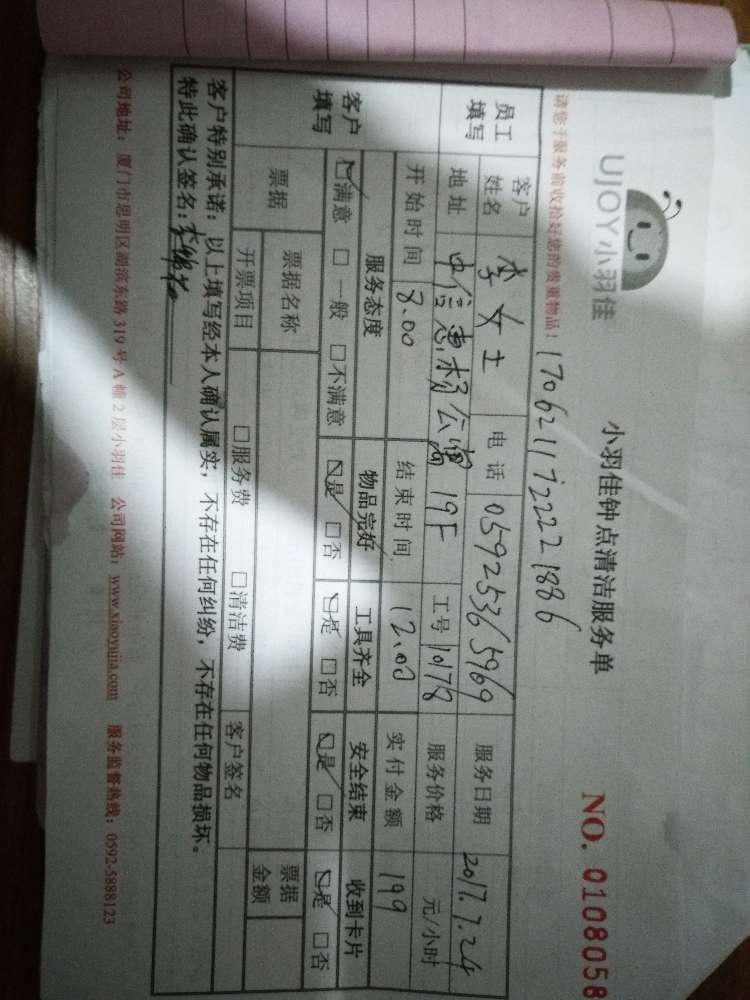 UJOY小羽佳
小羽佳钟点清洁服务单
NO. 0108058
请您于服务前收拾好您的贵重物品！
员工填写 客户姓名 李女士 电话 05925365969 服务日期 2017.7.24
地址 中信惠扬公寓 19F 工号 10178 服务价格 元/小时
开始时间 8.00 结束时间 12.00 实付金额 199
客户填写 服务态度 物品完好 工具齐全 安全结束 收到卡片
☑满意 □一般 □不满意 ☑是 □否 ☑是 □否 ☑是 □否 ☑是 □否
票据 票据名称 票据金额
开票项目 □服务费 □清洁费 客户签名
客户特别承诺：以上填写经本人确认属实，不存在任何纠纷，不存在任何物品损坏。
特此确认签名：
公司地址：厦门市思明区湖滨东路 319 号 A 幢 2 层小羽佳 公司网站：www.xiaoyujia.com 服务监督热线：0592-5888123